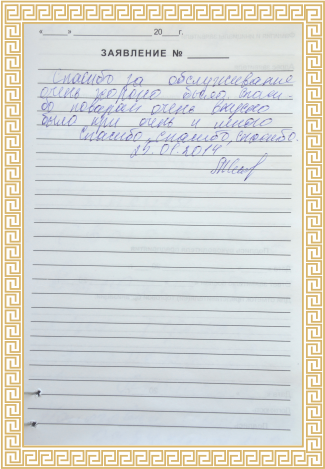 « » 20 г.
ЗАЯВЛЕНИЕ №
Спасибо за обслуживание
очень хорошо было, спаси-
бо поварам очень вкусно
было очень и много
Спасибо, спасибо, спасибо.
25.01.2014